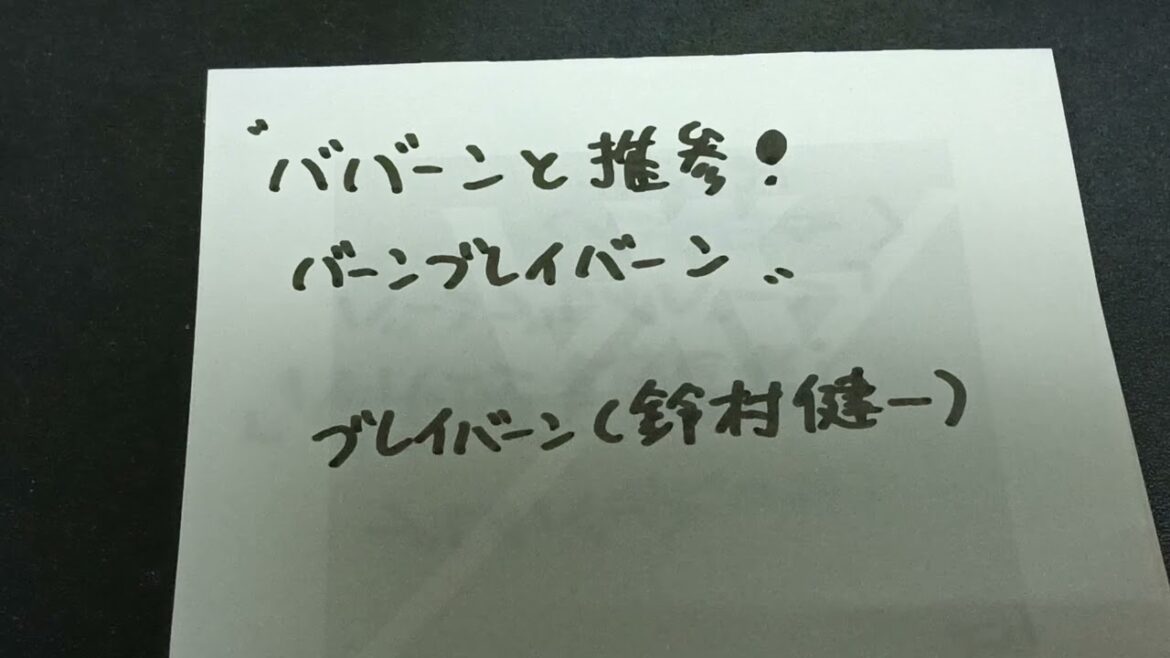 〝ババーンと推参!
バーンブレイバーン〟
ブレイバーン(鈴村健一)